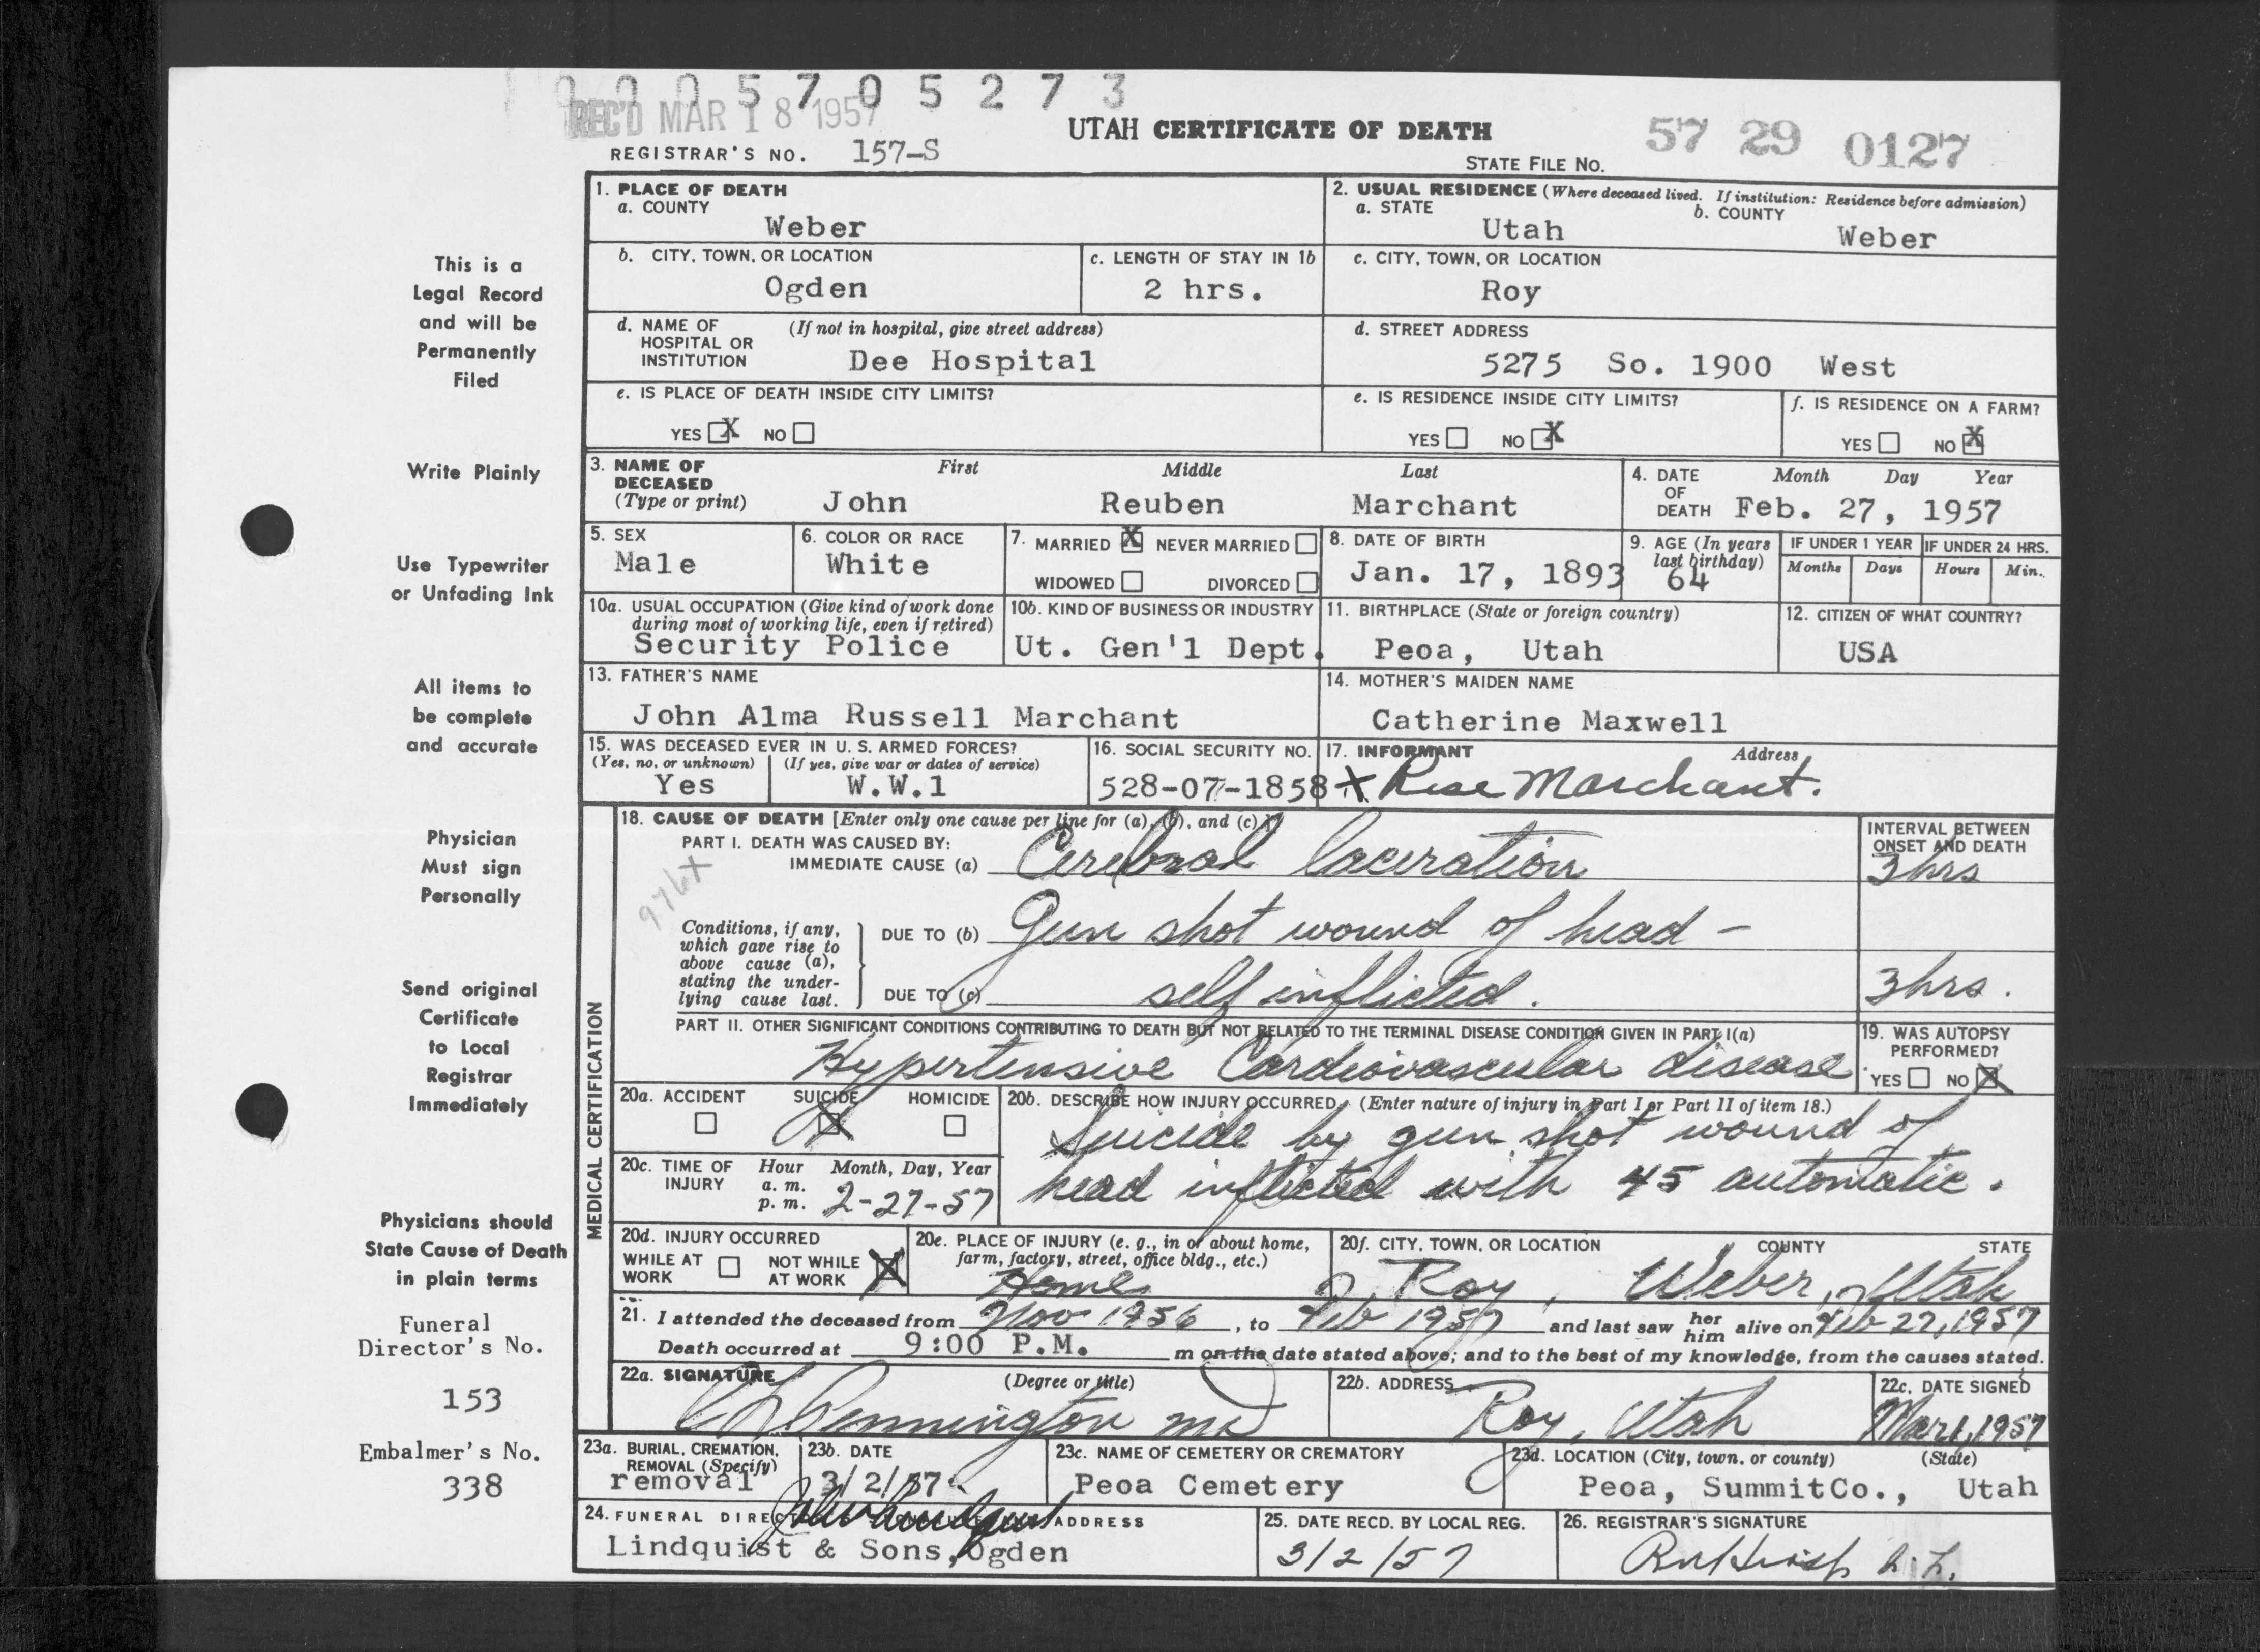 0 0 0 5 7 0 5 2 7 3
REC'D MAR 18 1957
UTAH CERTIFICATE OF DEATH
57 29 0127
REGISTRAR'S NO. 157-S
STATE FILE NO.
1. PLACE OF DEATH
a. COUNTY
Weber
2. USUAL RESIDENCE (Where deceased lived. If institution: Residence before admission)
a. STATE
Utah
b. COUNTY
Weber
b. CITY, TOWN, OR LOCATION
Ogden
c. LENGTH OF STAY IN 1b
2 hrs.
c. CITY, TOWN, OR LOCATION
Roy
d. NAME OF HOSPITAL OR INSTITUTION
(If not in hospital, give street address)
Dee Hospital
d. STREET ADDRESS
5275 So. 1900 West
e. IS PLACE OF DEATH INSIDE CITY LIMITS?
YES X NO
e. IS RESIDENCE INSIDE CITY LIMITS?
YES NO X
f. IS RESIDENCE ON A FARM?
YES NO X
3. NAME OF DECEASED
(Type or print)
First Middle Last
John Reuben Marchant
4. DATE OF DEATH
Month Day Year
Feb. 27, 1957
5. SEX
Male
6. COLOR OR RACE
White
7. MARRIED X NEVER MARRIED
WIDOWED DIVORCED
8. DATE OF BIRTH
Jan. 17, 1893
9. AGE (In years last birthday)
64
IF UNDER 1 YEAR
Months Days
IF UNDER 24 HRS.
Hours Min.
10a. USUAL OCCUPATION (Give kind of work done during most of working life, even if retired)
Security Police
10b. KIND OF BUSINESS OR INDUSTRY
Ut. Gen'l Dept.
11. BIRTHPLACE (State or foreign country)
Peoa, Utah
12. CITIZEN OF WHAT COUNTRY?
USA
13. FATHER'S NAME
John Alma Russell Marchant
14. MOTHER'S MAIDEN NAME
Catherine Maxwell
15. WAS DECEASED EVER IN U. S. ARMED FORCES?
(Yes, no, or unknown) (If yes, give war or dates of service)
Yes W.W.1
16. SOCIAL SECURITY NO.
528-07-1858
17. INFORMANT Address
X Marchant.
MEDICAL CERTIFICATION
18. CAUSE OF DEATH [Enter only one cause per line for (a), (b), and (c).]
PART I. DEATH WAS CAUSED BY:
IMMEDIATE CAUSE (a) Cerebral laceration
INTERVAL BETWEEN ONSET AND DEATH
3 hrs
976X
Conditions, if any, which gave rise to above cause (a), stating the underlying cause last.
DUE TO (b) Gun shot wound of head -
DUE TO (c) self inflicted.
3 hrs.
PART II. OTHER SIGNIFICANT CONDITIONS CONTRIBUTING TO DEATH BUT NOT RELATED TO THE TERMINAL DISEASE CONDITION GIVEN IN PART I(a)
Hypertensive Cardiovascular disease.
19. WAS AUTOPSY PERFORMED?
YES NO X
20a. ACCIDENT SUICIDE HOMICIDE
X
20b. DESCRIBE HOW INJURY OCCURRED. (Enter nature of injury in Part I or Part II of item 18.)
Suicide by gun shot wound of
head inflicted with 45 automatic.
20c. TIME OF INJURY
Hour Month, Day, Year
a. m.
p. m. 2-27-57
20d. INJURY OCCURRED
WHILE AT WORK NOT WHILE AT WORK X
20e. PLACE OF INJURY (e. g., in or about home, farm, factory, street, office bldg., etc.)
Home
20f. CITY, TOWN, OR LOCATION COUNTY STATE
Roy, Weber, Utah
21. I attended the deceased from Nov 1956, to Feb 1957 and last saw her him alive on Feb 27, 1957
Death occurred at 9:00 P.M. m on the date stated above; and to the best of my knowledge, from the causes stated.
22a. SIGNATURE (Degree or title)
Pennington MD
22b. ADDRESS
Roy, Utah
22c. DATE SIGNED
Mar 1, 1957
23a. BURIAL, CREMATION, REMOVAL (Specify)
removal
23b. DATE
3/2/57
23c. NAME OF CEMETERY OR CREMATORY
Peoa Cemetery
23d. LOCATION (City, town, or county) (State)
Peoa, SummitCo., Utah
24. FUNERAL DIRECTOR'S SIGNATURE ADDRESS
Lindquist & Sons, Ogden
25. DATE RECD. BY LOCAL REG.
3/2/57
26. REGISTRAR'S SIGNATURE
This is a
Legal Record
and will be
Permanently
Filed
Write Plainly
Use Typewriter
or Unfading Ink
All items to
be complete
and accurate
Physician
Must sign
Personally
Send original
Certificate
to Local
Registrar
Immediately
Physicians should
State Cause of Death
in plain terms
Funeral
Director's No.
153
Embalmer's No.
338